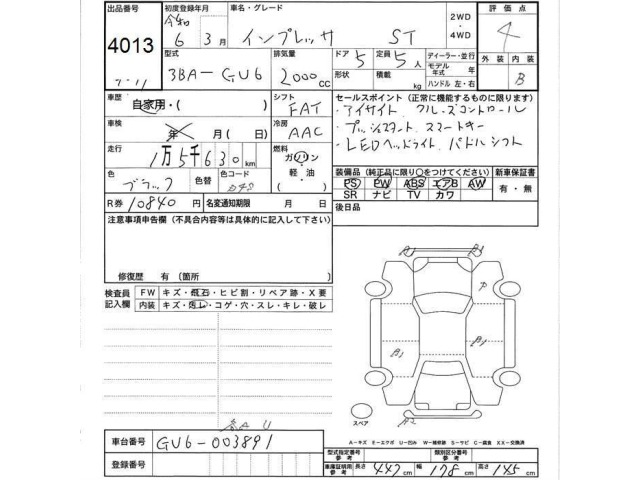 出品番号 初度登録年月 車名・グレード 2WD ・ 4WD 評価点
4013 令和 6 3月 インプレッサ ST 4
型式 排気量 ドア 定員 ディーラー・並行 外装 内装
3BA-GU6 2000cc 5 5人 モデル年式 年 B
形状 積載 kg ハンドル 左・右
車歴 自家用・( ) シフト FAT セールスポイント(正常に機能するものに限ります)
・アイサイト クルーズコントロール
車検 年 月(日) 冷房 AAC ・プッシュスタート スマートキー
走行 1万5千630km 燃料 ガソリン・軽油( ) ・LEDヘッドライト パドルシフト
色 ブラック 色替 色コード D4S 装備品(純正品に限り○をつけてください) 新車保証書
PS PW ABS エアB AW 有・無
SR ナビ TV カワ
R券 10840円 名変通知期限 月 日 後日品
注意事項申告欄(不具合内容等は具体的に記入して下さい)
修復歴 有(箇所 )
検査員記入欄 FW キズ・飛石・ヒビ割・リペア跡・X要
内装 キズ・汚レ・コゲ・穴・スレ・キレ・破レ
スペア
A-キズ E-エクボ U-凹み W-補修跡 S-サビ C-腐食 XX-交換済
車台番号 GU6-003891
型式指定番号 参考 類別区分番号 参考
登録番号 車庫証明用 参考 長さ 447cm 幅 178cm 高さ 145cm